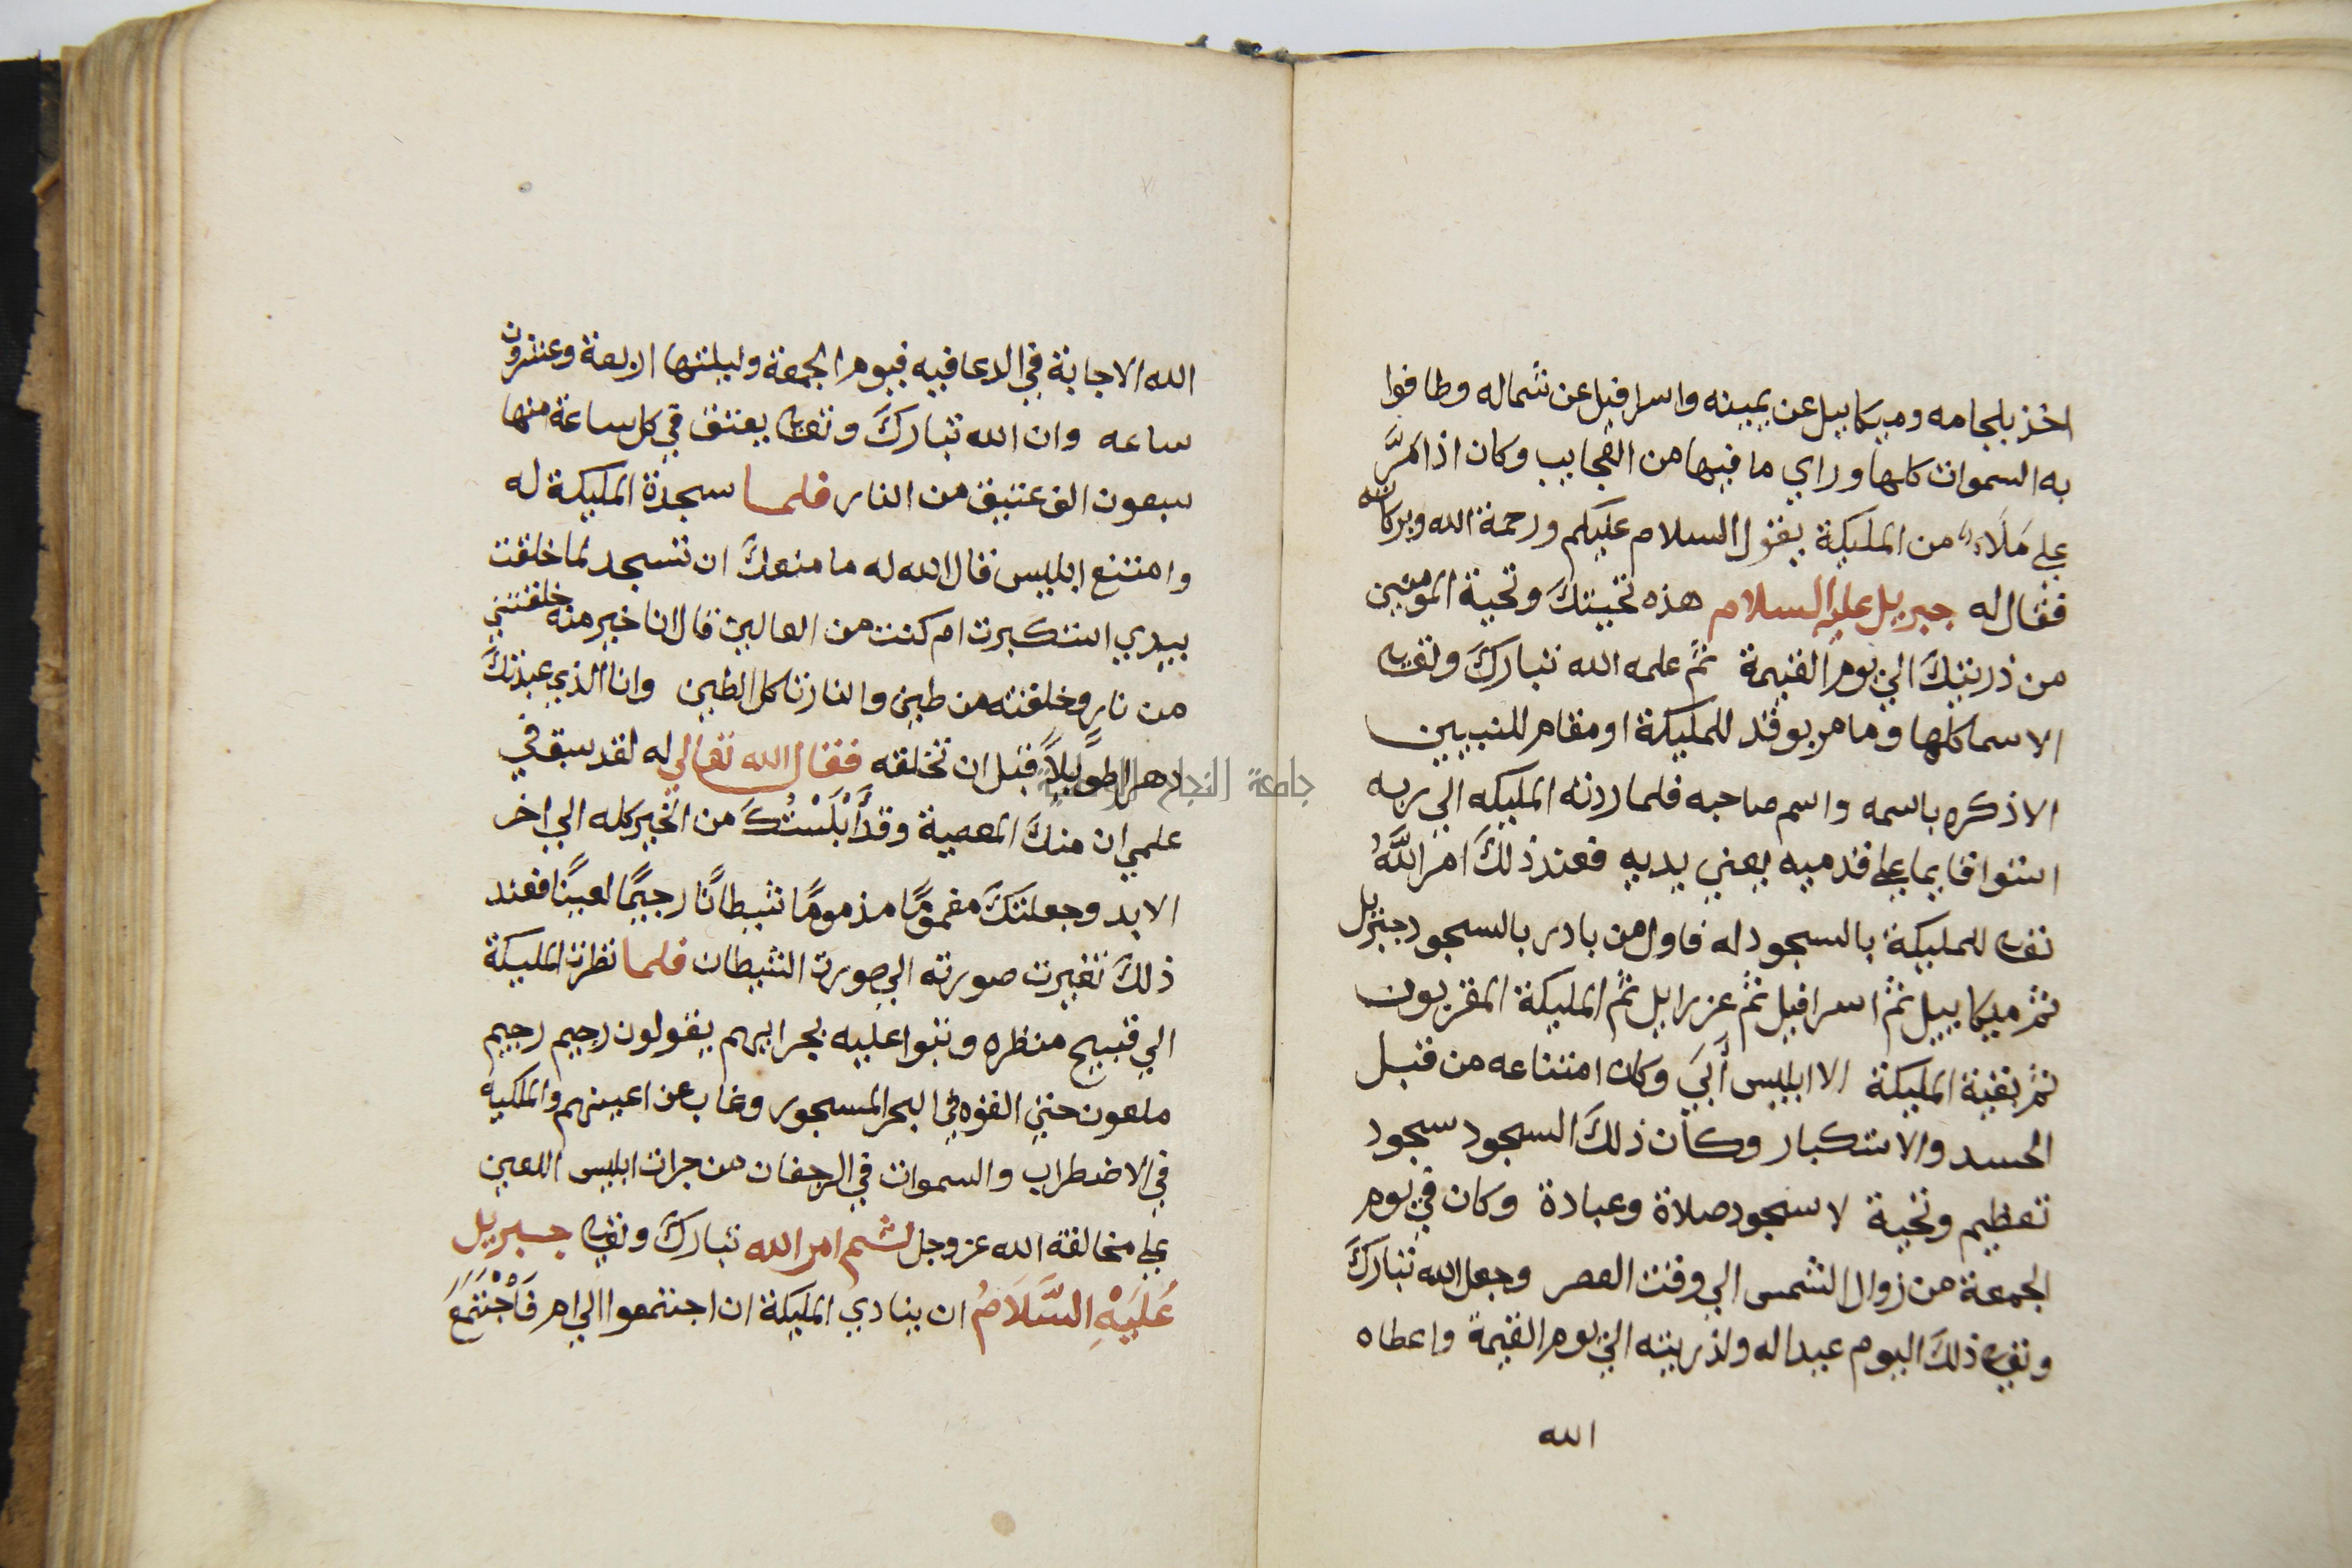 اخذ بلجامه وميكاييل عن يمينه واسرافيل عن شماله وطافوا
به السموات كلها وراي ما فيها من العجايب وكان اذا مَرَّ
علي مَلَاءٍ من المليكة يقول السلام عليكم ورحمة الله وبركاته
فقال له جبريل عليه السلام هذه تحيتكَ وتحية المومنين
من ذريتكَ الي يوم القيمة ثمَّ علمه الله تباركَ وتعالى
الاسما كلها وما مر بوفد للمليكة او مقام للنبيين
الا ذكره باسمه واسم صاحبه فلما ردته المليكه الي ربه
استوا قايما علي قدميه يعني يديه فعند ذلكَ امر اللَّهُ
تعالى للمليكة بالسجود له فاول من بادر بالسجود جبريل
ثمَّ ميكاييل ثمَّ اسرافيل ثمَّ عزرايل ثمَّ المليكة المقربون
ثمَّ بقية المليكة الا ابليس أَبَيَ وكان امتناعه من قبل
الحسد والاستكبار وكان ذلكَ السجود سجود
تعظيم وتحية لا سجود صلاة وعبادة وكان في يوم
الجمعة من زوال الشمس الي وقت العصر وجعل الله تباركَ
وتعالى ذلكَ اليوم عيدا له ولذريته الي يوم القيمة واعطاه
الله
الله الاجابة في الدعا فيه فيوم الجمعة وليلتها اربعة وعشرون
ساعه وان الله تباركَ وتعالى يعتق في كل ساعة منها
سبعون الف عتيق من النار فلما سجدة المليكة له
وامتنع ابليس قال الله له ما منعكَ ان تسجد لما خلقت
بيدي استكبرت ام كنت من العالين قال انا خير منه خلقتني
من نار وخلقته من طين والنار تاكل الطين وانا الذي عبدتكَ
دهرا طويلًا قبل ان تخلقه فقال الله تعالي له لقد سبق في
علمي ان منكَ المعصية وقد أَبْلَسْتُكَ من الخير كله الي اخر
الابد وجعلتكَ مذمومًا شيطانًا رجيمًا لعينًا فعند
ذلكَ تغيرت صورته الي صورة الشيطان فلما نظرت المليكة
الي قبيح منظره وثبوا عليه بحرابهم يقولون رجيم رجيم
ملعون حتي القوه في البحر المسجور وغاب عن اعينهم والملكية
في الاضطراب والسموات في الرجفان من جرات ابليس اللعين
علي مخالفة الله عز وجل ثم امر الله تباركَ وتعالى جبريل
عَلَيْهِ السَّلَامُ ان ينادي المليكة ان اجتمعوا الي ادم فَاجْتَمَعَ
جامعة النجاح